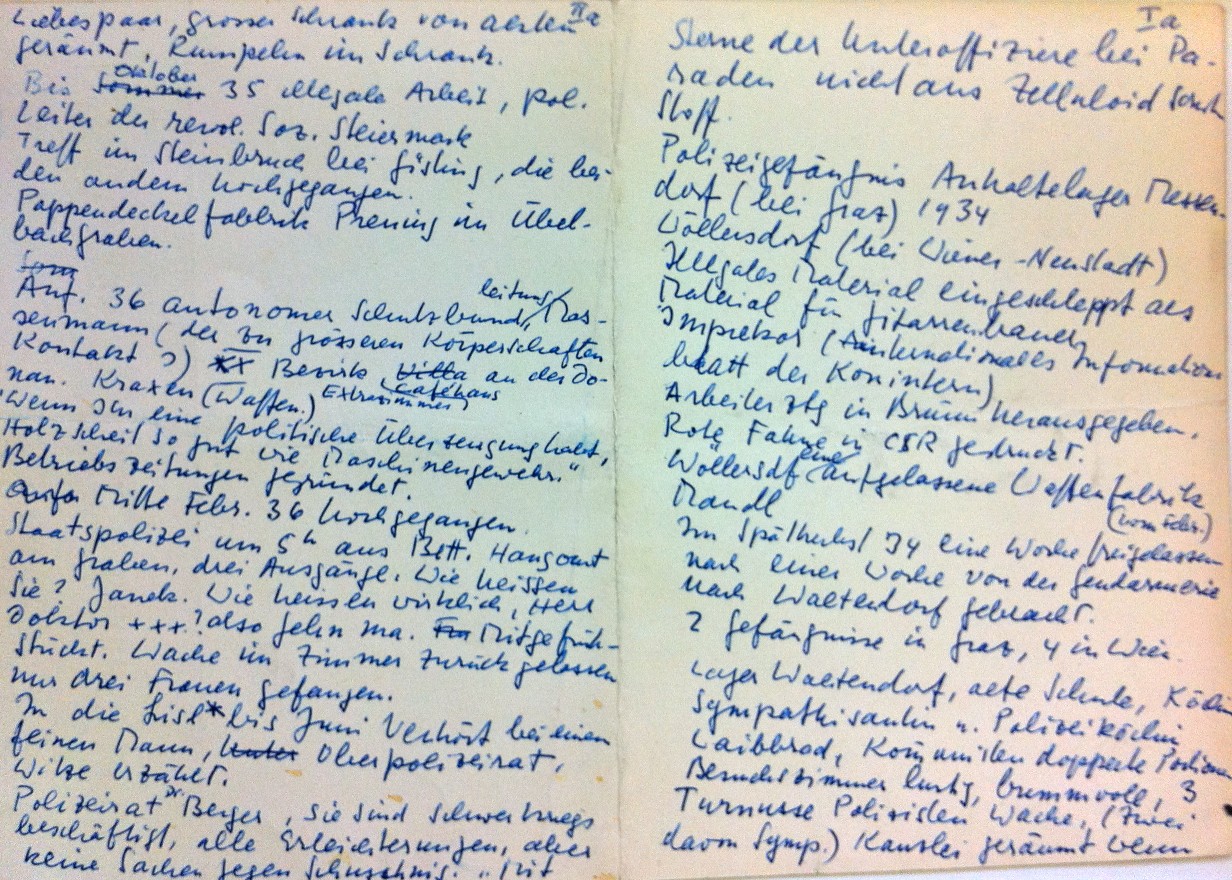 IIa
Liebespaar, grosser Schrank von Akten
geräumt, Rumpeln im Schrank.
Oktober
Bis Sommer 35 illegale Arbeit, pol.
Leiter der revol. Soz. Steiermark
Treff im Steinbruch bei Gösting, die bei-
den andern hochgegangen.
Pappendeckelfabbrik Prening im Übel-
bachgraben.
Som
Anf. 36 autonomer Schutzbund, leitung Mos-
senmann (der zu grösseren Körperschaften
Kontakt?) XX Bezirk Villa an der Do-
nau. Kraxen (Waffen.) Extrazimmer, Caféhaus
"Wenn Ihr eine politische Überzeugung habt,
Holzscheit so gut wie Maschinengewehr."
Betriebszeitungen gegründet.
Mitte Febr. 36 hochgegangen.
Staatspolizei um 5h aus Bett. Haugout
am Graben, drei Ausgänge. Wie heissen
Sie? Janek. Wie heissen wirklich, Herr
Doktor +++? also gehn ma. Mitgefrüh-
stückt. Wache im Zimmer zurückgelassen
nur drei Frauen gefangen.
In die Lisl* bis Juni Verhört bei einem
feinen Mann, Unter Oberpolizeirat,
Witze erzählt.
Polizeirat Dr Berger, Sie sind Schwerkriegs
beschäftigt, alle Erleichterungen, aber
keine Sachen gegen Schuschnig. " Mit
Ia
Sterne der Unteroffiziere bei Pa-
raden nicht aus Zelluloid sondern
Stoff.
Polizeigefängnis Anhaltelager Messen-
dorf (bei Graz) 1934
Wöllersdorf (bei Wiener-Neustadt)
Illegales Material eingeschleppt als
Material für Gitarrenbauer
Imprekor (Internationales Information
blatt der Komintern)
Arbeiterztg in Brünn herausgegeben.
Rote Fahne in CSR gedruckt.
Wöllersdf einer aufgelassene Waffenfabrik
Mandl
(vom Febr.)
Im Spätherbst 34 eine Woche freigelassen
nach einer Woche von der Gendarmerie
nach Waltendorf gebracht.
2 Gefängnisse in Graz, 4 in Wien.
Lager Waltendorf, alte Schule, Köchin
Sympathisantin u. Polizeiköchin
Laibbrod, Kommunisten doppelte Portionen
Besuchszimmer lustig, bummvoll, 3
Turnusse Polizisten Wache, (Zwei
davon Symp.) Kanzlei geräumt wenn